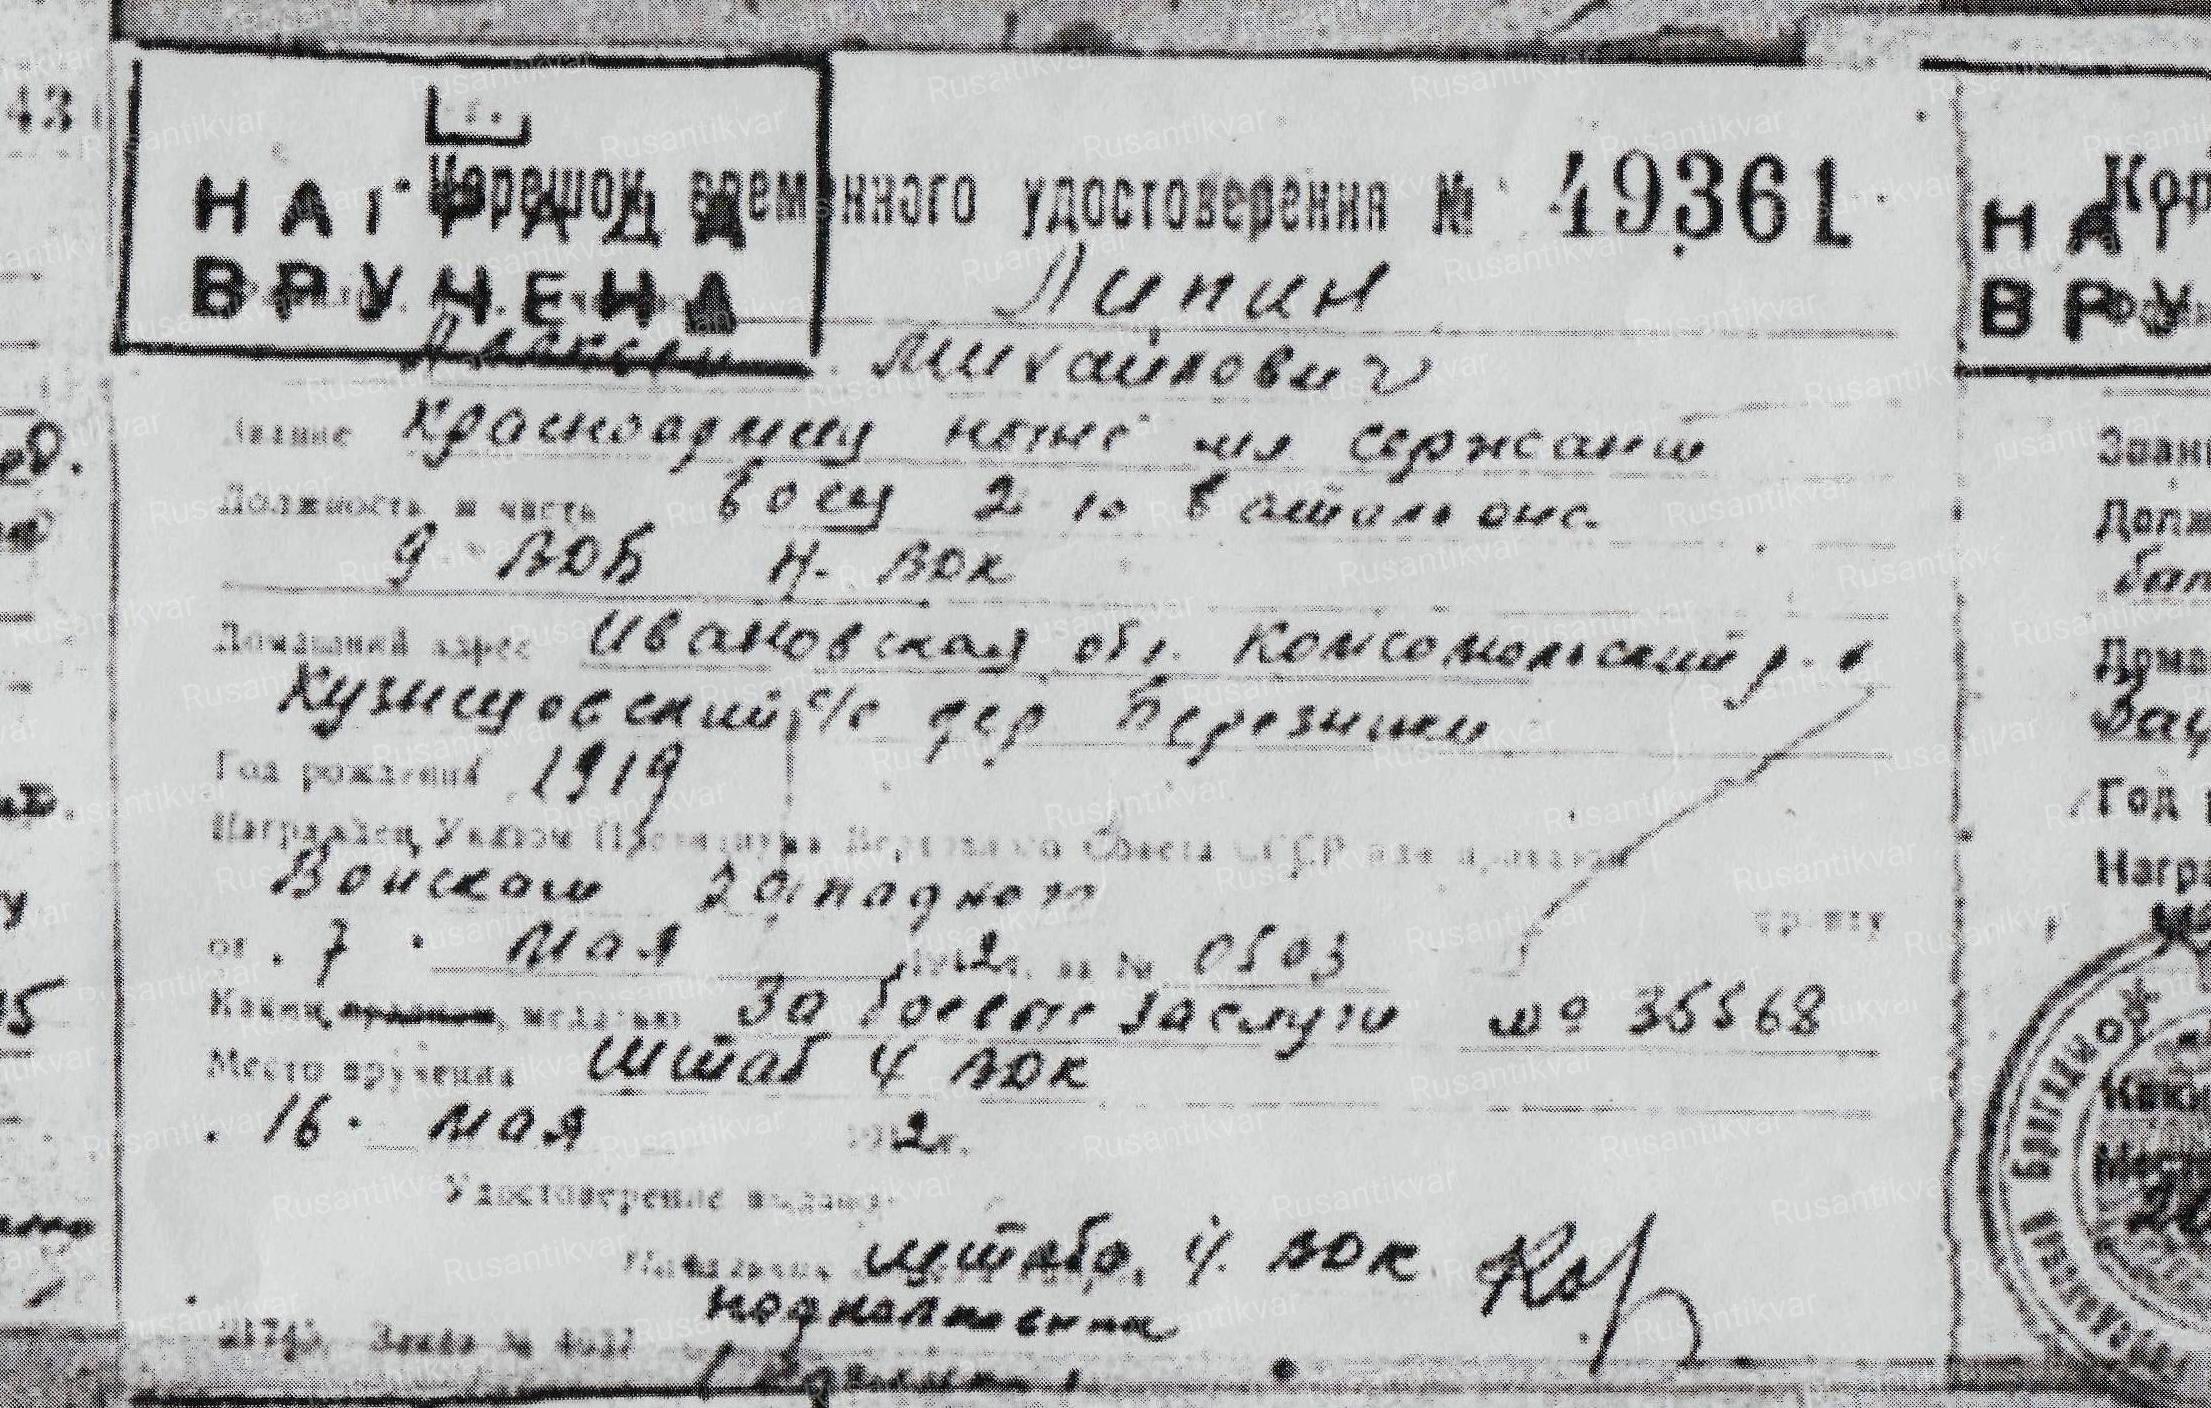 НАГРАДА
ВРУЧЕНА
Корешок временного удостоверения № 49361
Липин
Алексей Михайлович
Звание Красноармеец ныне мл сержант
Должность и часть боец 2-го батальона
9 ВДБ 4. ВДК
Домашний адрес Ивановская обл. Комсомольский р-н
Кузнецовский с/с дер Березники
Год рождения 1919
Награжден Указом Президиума Верховного Совета СССР или приказом
Войскам Западного
фронту
от 7 мая 2г. за № 0503
Каким медалью За боевые заслуги № 35568
Место вручения Штаб 4 ВДК
16 мая 2г.
Удостоверение выдано
штаба 4 ВДК
подполковник
Заказ № 4037
43
Кор
НАГ
ВРУ
Звани
Долж
бат
Дома
Год р
Награ